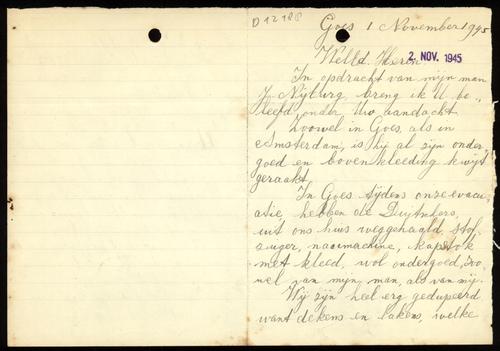 D12188
Goes 1 November 1945
Weled. Heeren,
2 NOV. 1945
In opdracht van mijn man
J. Nijburg, breng ik U be„
leefd onder Uw aandacht
Zoowel in Goes, als in
Amsterdam, is hij al zijn onder„
goed en boven kleeding kwijt
geraakt.
In Goes tijdens onze evacu„
atie, hebben de Duitschers,
uit ons huis weggehaald, stof„
zuiger, naaimachine, kapstok
met kleed, wol ondergoed, zoo„
wel van mijn man, als van mij.
Wij zijn heel erg gedupeerd
want dekens en lakens, welke